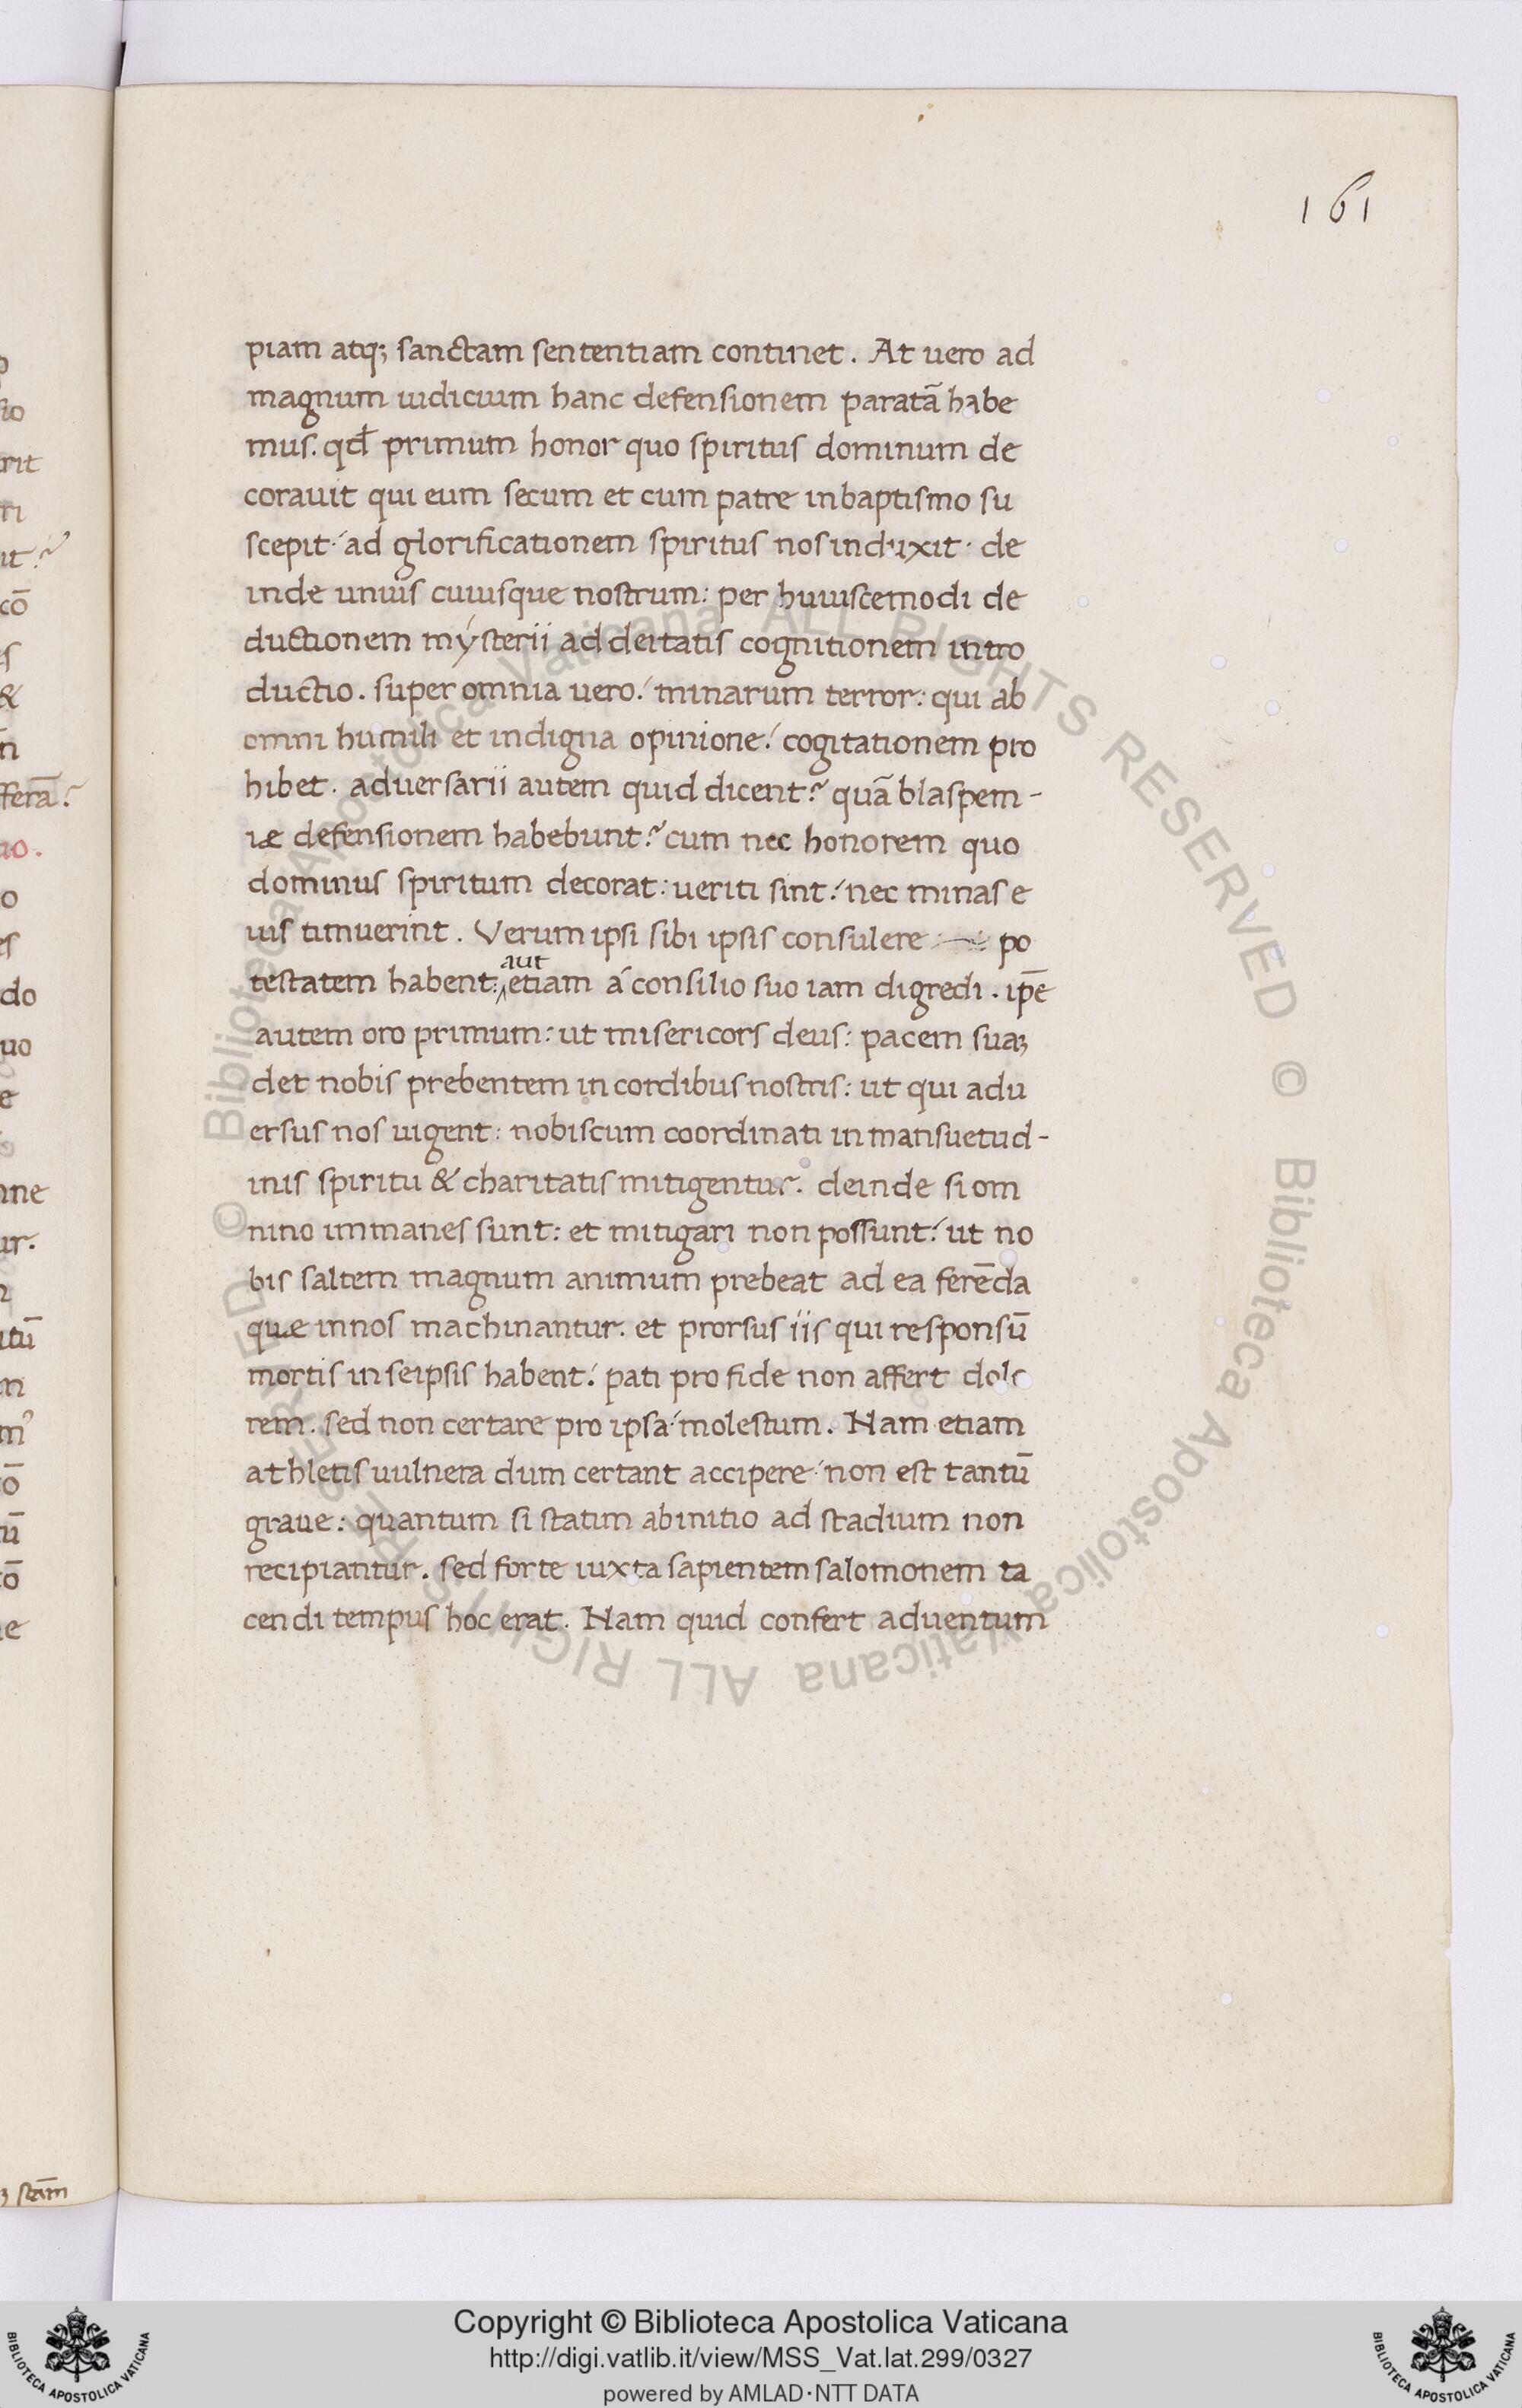 161
piam atq; sanctam sententiam continet. At uero ad
magnum iudicium hanc defensionem paratā habe
mus. qđ primum honor quo spiritus dominum de
corauit qui eum secum et cum patre inbaptismo su
scepit·́ ad glorificationem spiritus nos induxit· de
inde unius cuiusque nostrum: per huiuscemodi de
ductionem mýsterii ad deitatis cognitionem intro
ductio. super omnia uero.́ minarum terror: qui ab
omni humili et indigna opinione.́ cogitationem pro
hibet. aduersarii autem quid dicent? quā blaspem-
iæ defensionem habebunt? cum nec honorem quo
dominus spiritum decorat: ueriti sint.́ nec minas e
ius timuerint. Verum ipsi sibi ipsis consulere po
aut
testatem habent: etiam á consilio suo iam digredi. ip̄e
autem oro primum: ut misericors deus: pacem suaʒ
det nobis prebentem in cordibus nostris: ut qui adu
ersus nos uigent: nobiscum coordinati in mansuetud-
inis spiritu & charitatis mitigentur. deinde si om
nino immanes sunt: et mitigari non possunt.́ ut no
bis saltem magnum animum prebeat ad ea ferēda
quæ innos machinantur. et prorsus iis qui responsū
mortis in seipsis habent.́ pati pro fide non affert dolo
rem. sed non certare pro ipsa·́ molestum. Nam etiam
athletis uulnera dum certant accipere·́ non est tantū
graue: quantum si statim abinitio ad stadium non
recipiantur. sed forte iuxta sapientem salomonem ta
cendi tempus hoc erat. Nam quid confert aduentum
© Biblioteca Apostolica Vaticana ALL RIGHTS RESERVED © Biblioteca Apostolica Vaticana ALL RIGHTS RESERVED
Copyright © Biblioteca Apostolica Vaticana
http://digi.vatlib.it/view/MSS_Vat.lat.299/0327
powered by AMLAD·NTT DATA
BIBLIOTECA APOSTOLICA VATICANA
BIBLIOTECA APOSTOLICA VATICANA